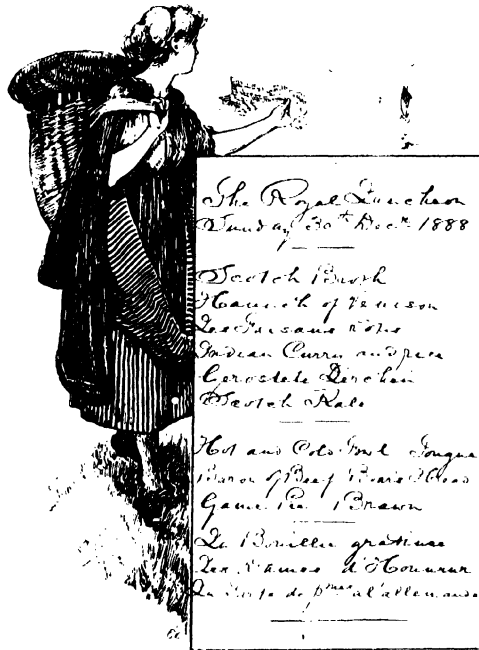 The Royal Luncheon
Sunday 30th Decr 1888
Scotch Broth
Haunch of Venison
Les Faisans rôtis
Indian Curry and rice
Scotch Kale
Hot and Cold Fowl Tongue
Baron of Beef Boar's Head
Game Pie Brawn
La Bouillie gratinée
Les d'Homeur
La de pmes à l'allemande